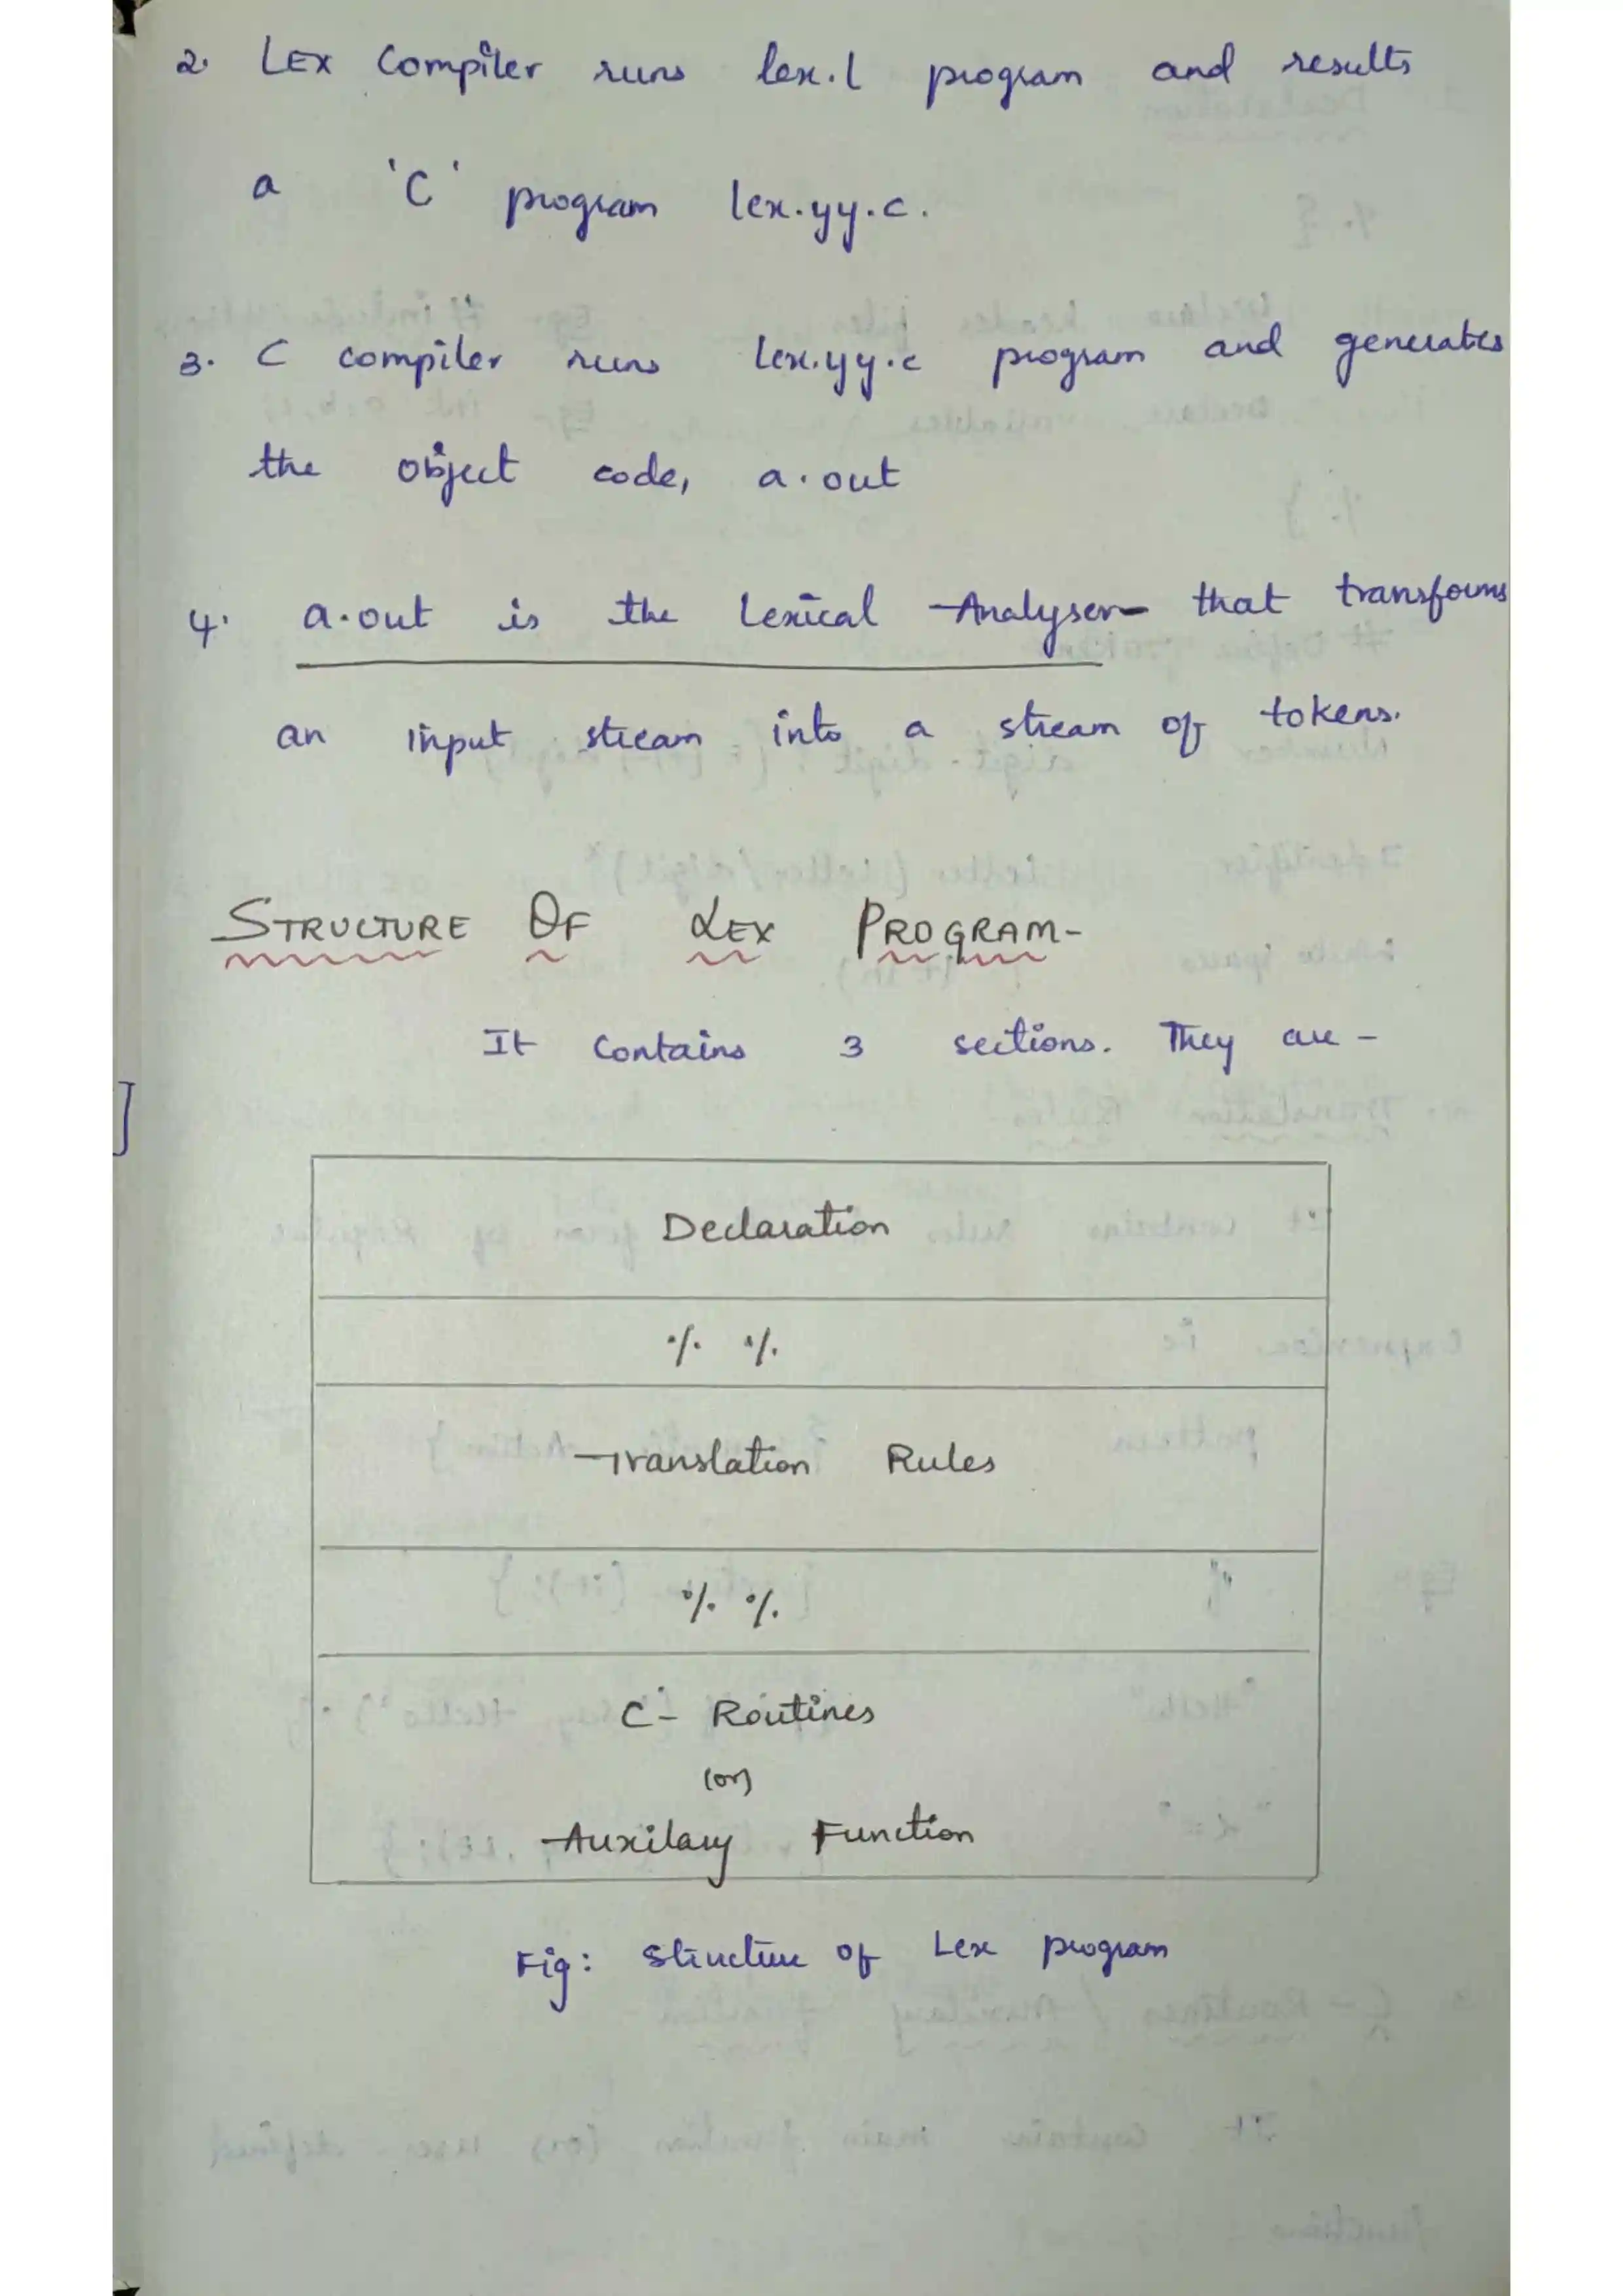 2. LEX Compiler runs lex.l program and results
a 'C' program lex.yy.c.
3. C compiler runs lex.yy.c program and generates
the object code, a.out
4. a.out is the Lexical Analyser that transforms
an input stream into a stream of tokens.
STRUCTURE OF LEX PROGRAM-
It contains 3 sections. They are -
]
Declaration
% %
Translation Rules
% %
C - Routines
(or)
Auxilary Function
Fig: Structure of Lex program